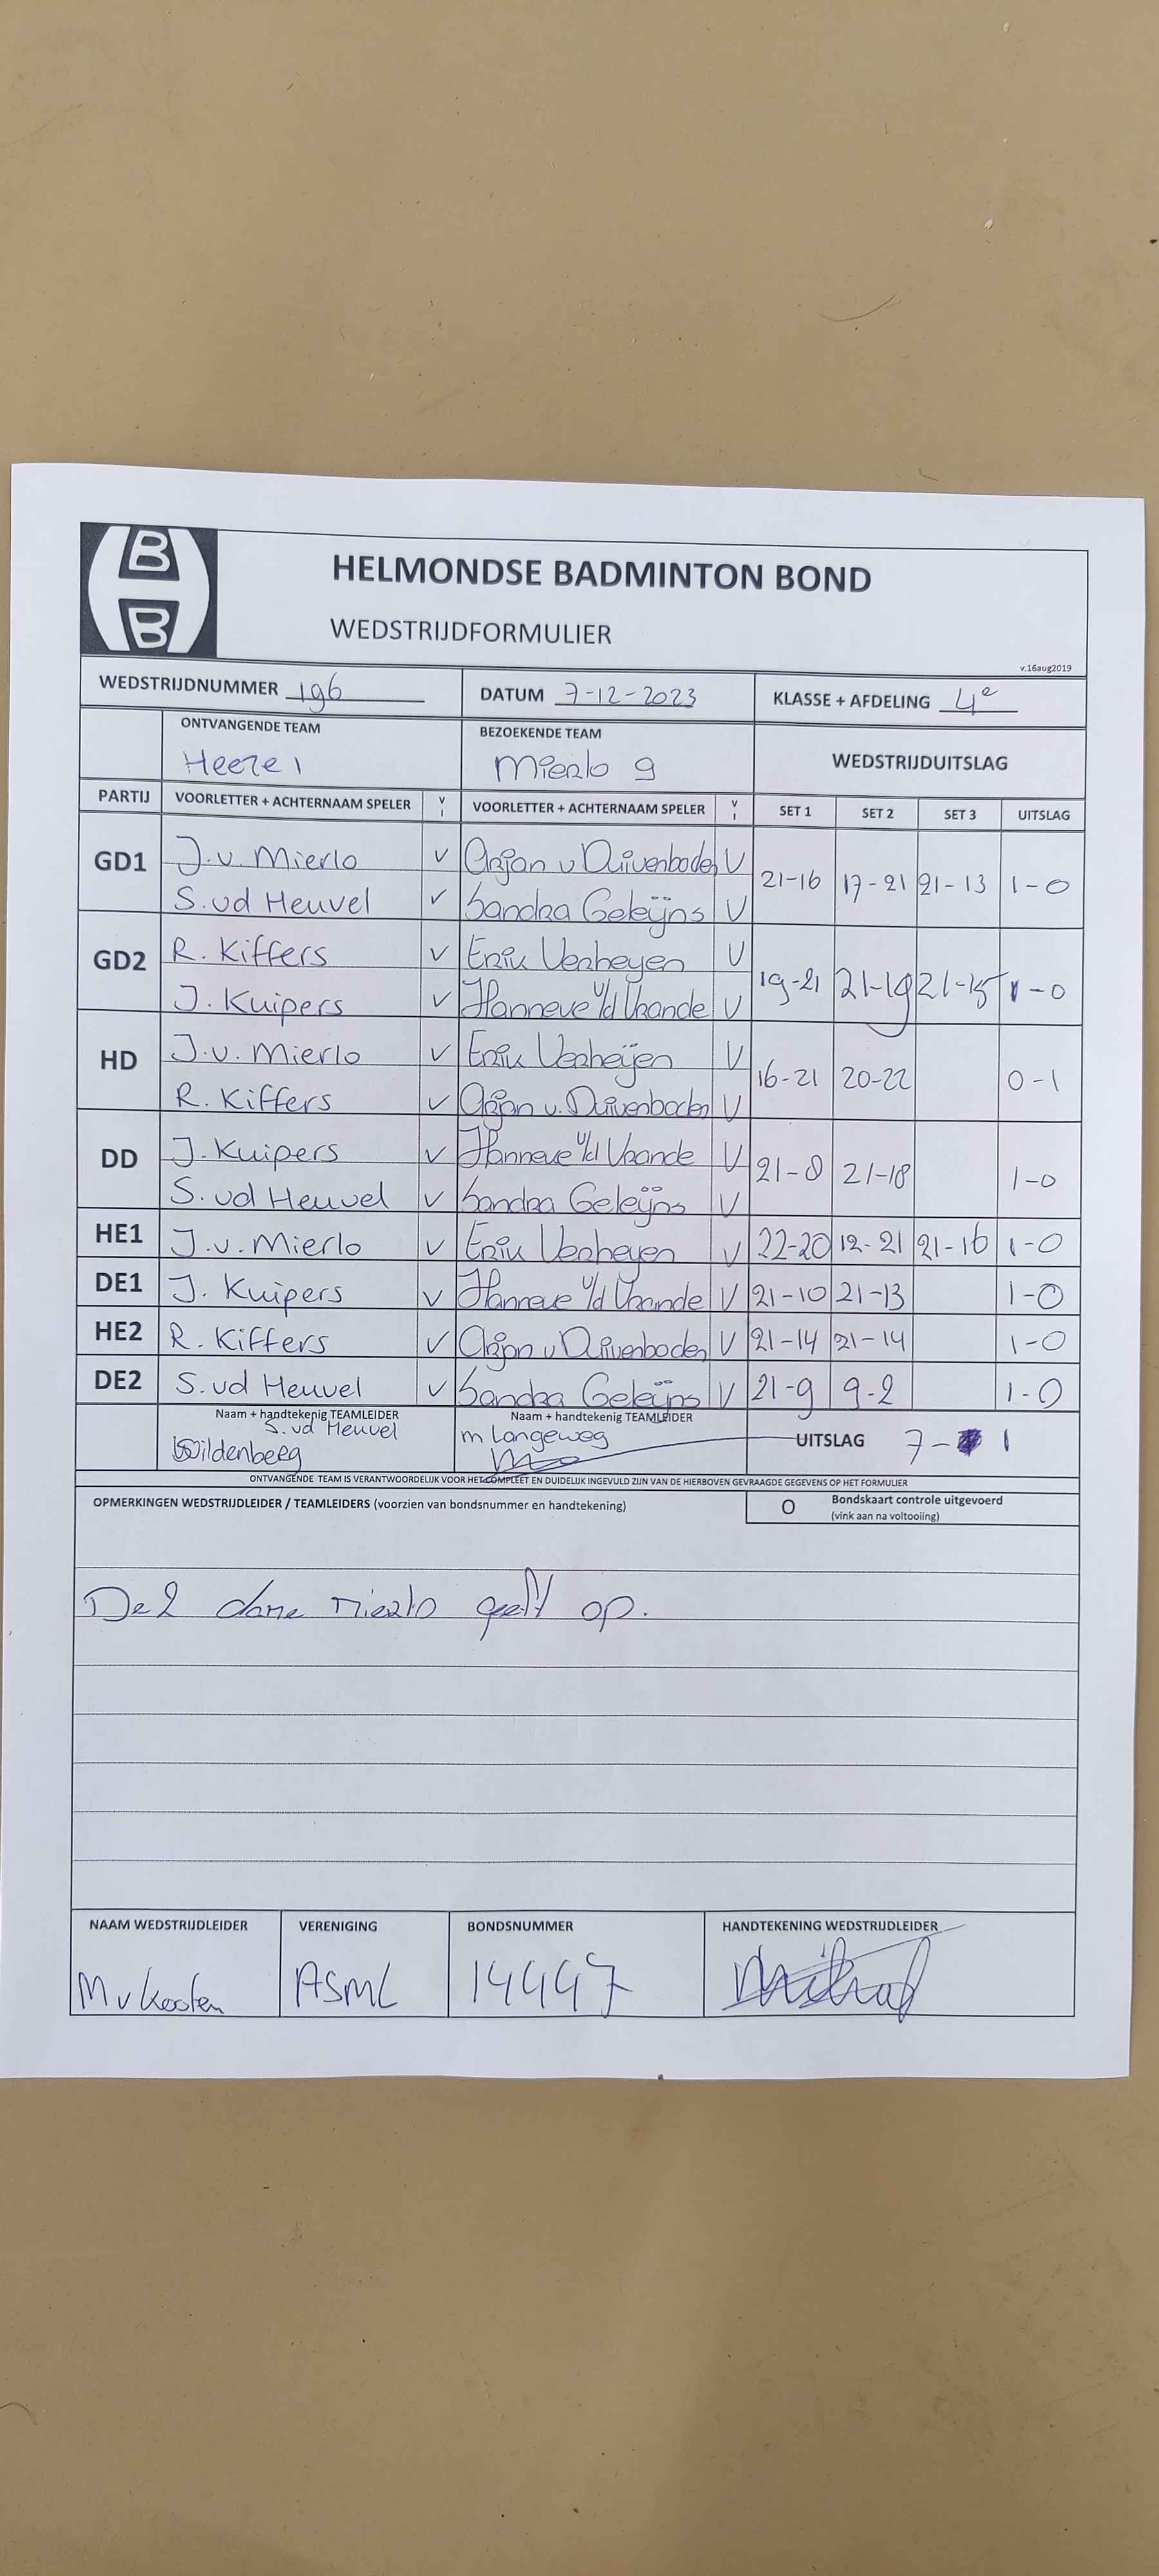 B
B
HELMONDSE BADMINTON BOND
WEDSTRIJDFORMULIER
v.16aug2019
WEDSTRIJDNUMMER 196 DATUM 7-12-2023 KLASSE + AFDELING 4e
ONTVANGENDE TEAM BEZOEKENDE TEAM WEDSTRIJDUITSLAG
Heeze 1 Mierlo 9
PARTIJ VOORLETTER + ACHTERNAAM SPELER V I VOORLETTER + ACHTERNAAM SPELER V I SET 1 SET 2 SET 3 UITSLAG
GD1 J.v. Mierlo V Arjan v Duivenboden V 21-16 17-21 21-13 1-0
S.vd Heuvel V Sandra Geleijns V
GD2 R. Kiffers V Erik Verheyen V 19-21 21-19 21-15 1-0
J. Kuipers V Hanneve v/d Vrande V
HD J.v. Mierlo V Erik Verheijen V 16-21 20-22 0-1
R. Kiffers V Arjan v. Duivenboden V
DD J. Kuipers V Hanneve v/d Vrande V 21-8 21-18 1-0
S. vd Heuvel V Sandra Geleijns V
HE1 J.v. Mierlo V Erik Verheyen V 22-20 12-21 21-16 1-0
DE1 J. Kuipers V Hanneve v/d Vrande V 21-10 21-13 1-0
HE2 R. Kiffers V Arjan v Duivenboden V 21-14 21-14 1-0
DE2 S. vd Heuvel V Sandra Geleijns V 21-9 9-2 1-0
Naam + handtekenig TEAMLEIDER Naam + handtekenig TEAMLEIDER
S. vd Heuvel m Langeweg UITSLAG 7- 1
ONTVANGENDE TEAM IS VERANTWOORDELIJK VOOR HET COMPLEET EN DUIDELIJK INGEVULD ZIJN VAN DE HIERBOVEN GEVRAAGDE GEGEVENS OP HET FORMULIER
OPMERKINGEN WEDSTRIJDLEIDER / TEAMLEIDERS (voorzien van bondsnummer en handtekening) O Bondskaart controle uitgevoerd
(vink aan na voltooiing)
De2 dame mierlo geeft op.
NAAM WEDSTRIJDLEIDER VERENIGING BONDSNUMMER HANDTEKENING WEDSTRIJDLEIDER
M v Kooten ASML 14447